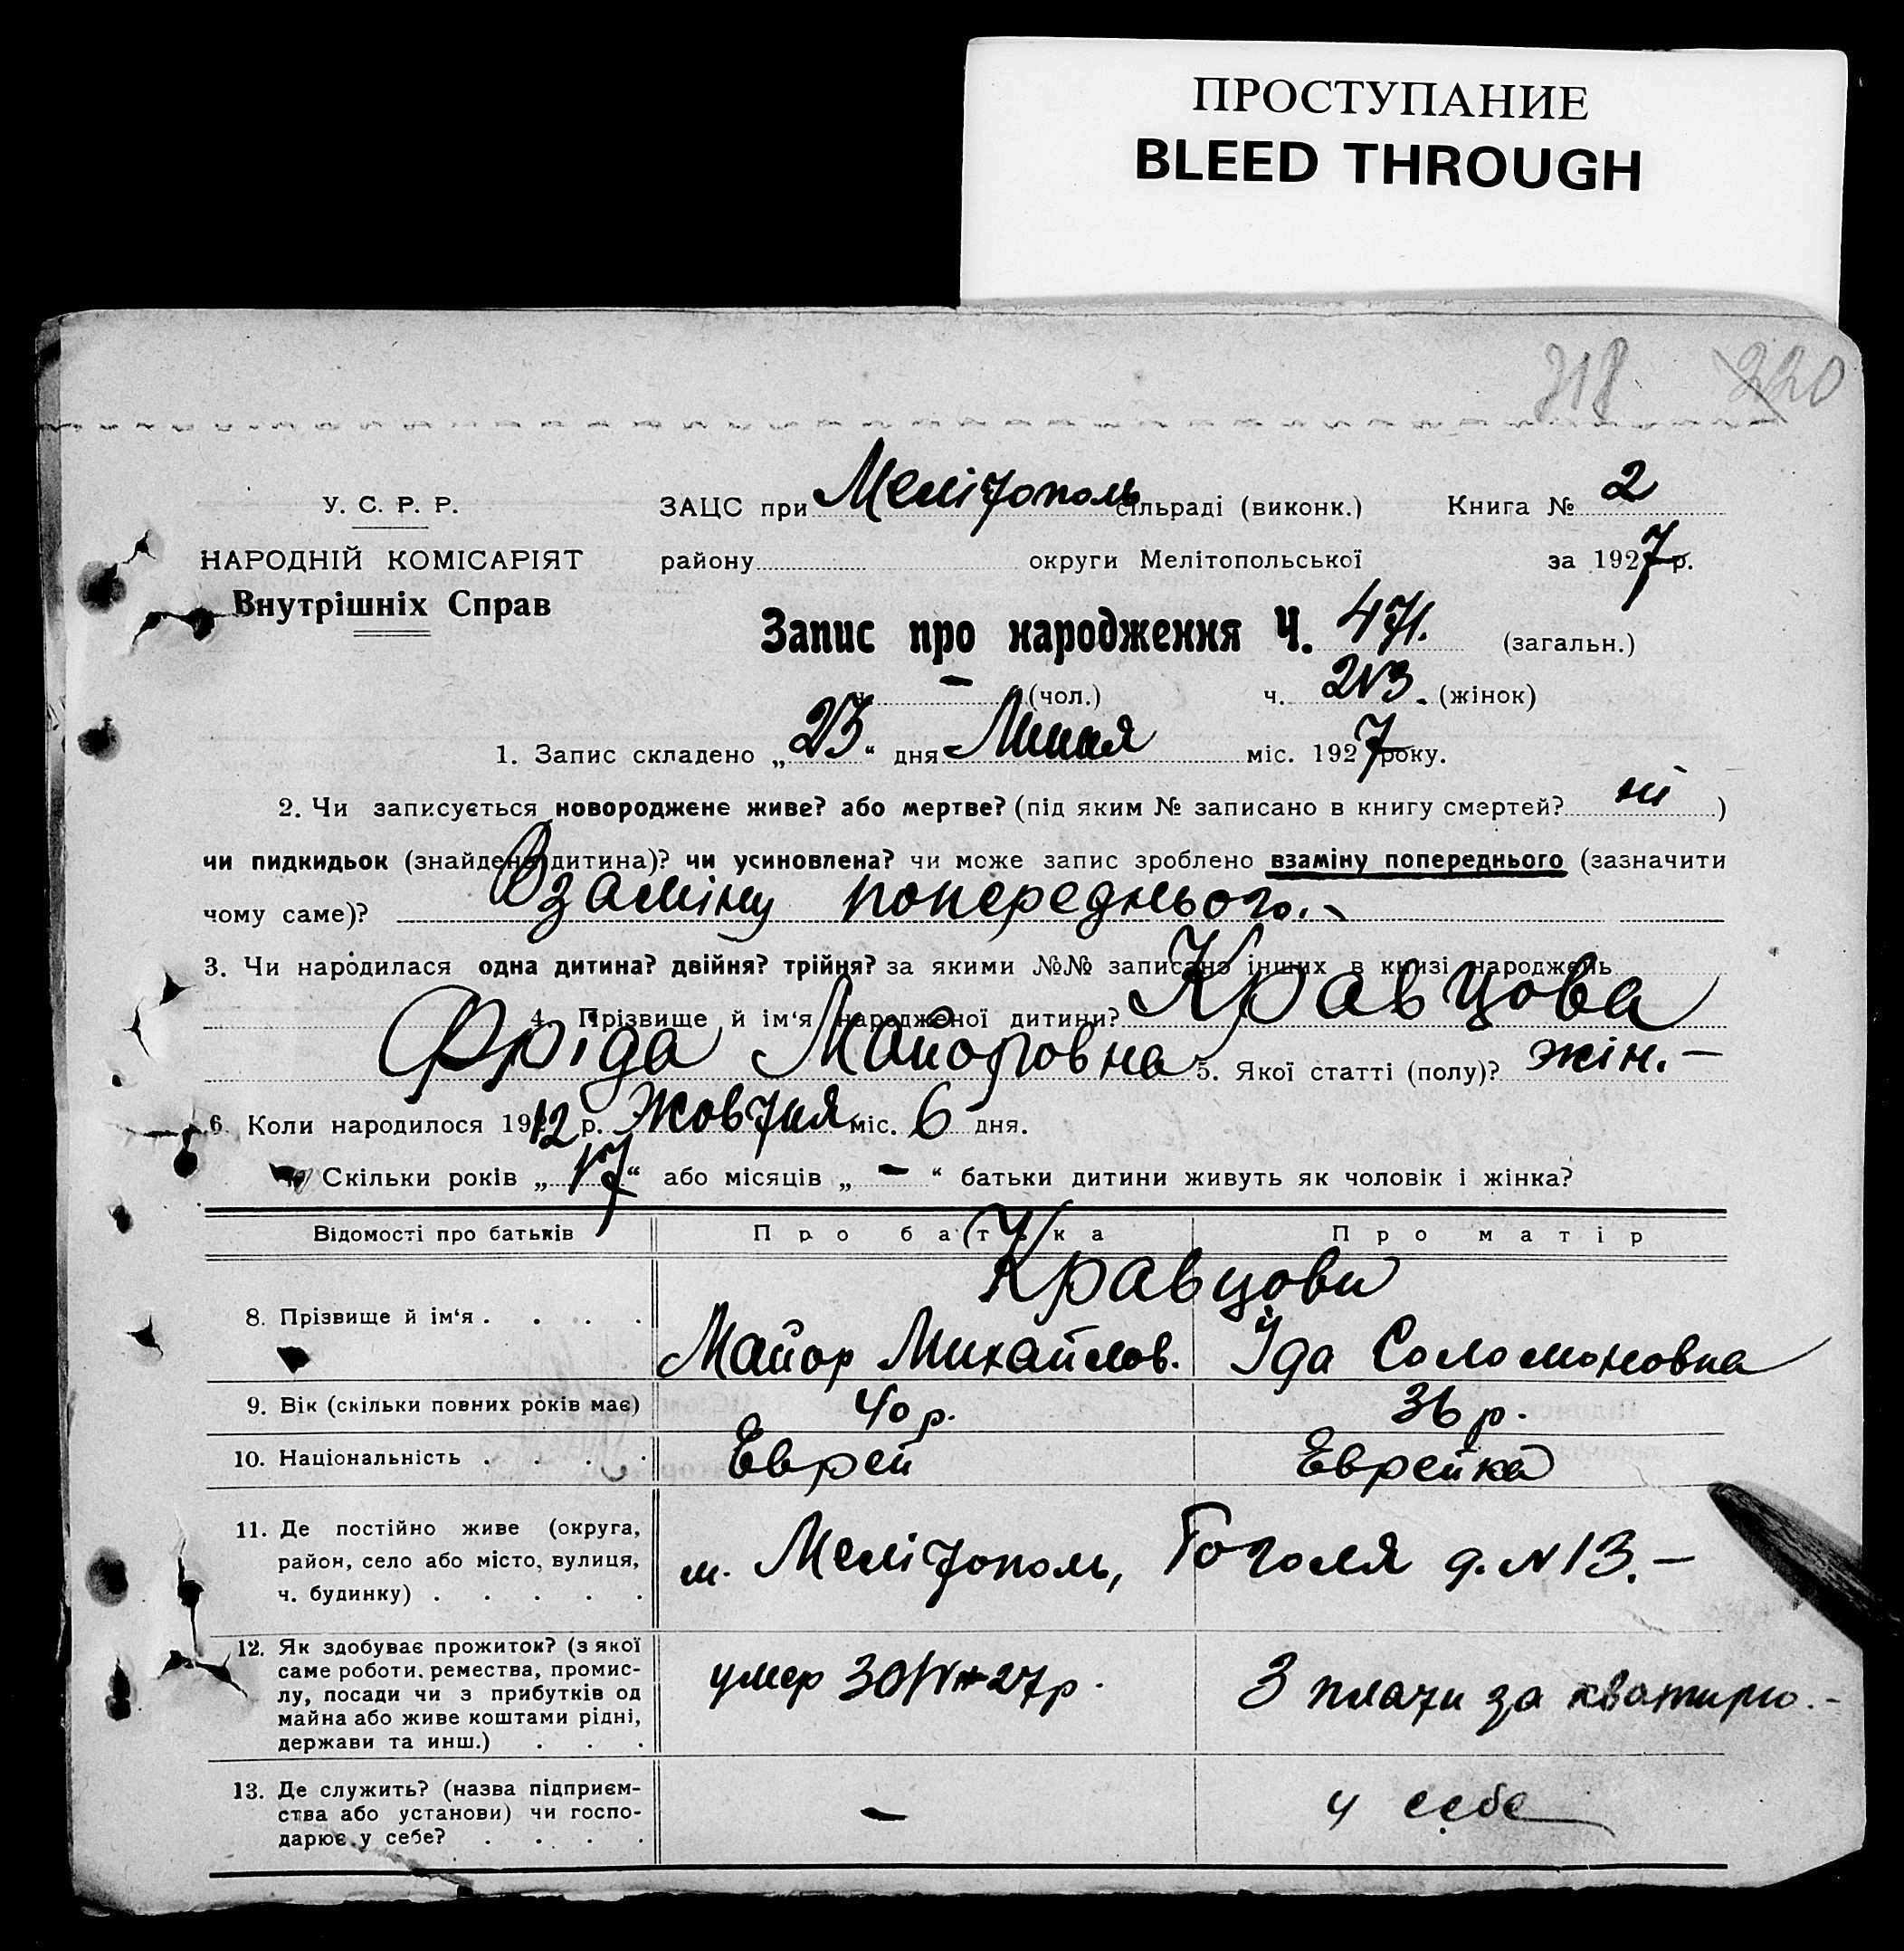 ПРОСТУПАНИЕ
BLEED THROUGH
318 220
У. С. Р. Р.
НАРОДНІЙ КОМІСАРІЯТ
Внутрішніх Справ
ЗАЦС при Мелітополь сільраді (виконк.) Книга № 2
району округи Мелітопольської за 1927 р.
Запис про народження Ч. 471. (загальн.)
— (чол.) ч. 213. (жінок)
1. Запис складено „23“ дня Липня міс. 1927 року.
2. Чи записується новороджене живе? або мертве? (під яким № записано в книгу смертей? ні )
чи пидкидьок (знайдена дитина)? чи усиновлена? чи може запис зроблено взаміну попереднього (зазначити
чому саме)? Взаміну попереднього. -
3. Чи народилася одна дитина? двійня? трійня? за якими №№ записано інших в книзі народжень
4. Прізвище й ім‘я народженої дитини? Кравцова
Фріда Майоровна 5. Якої статті (полу)? жін. —
6. Коли народилося 1912 р. Жовтня міс. 6 дня.
Скільки років „17“ або місяців „ — “ батьки дитини живуть як чоловік і жінка?
Відомості про батьків Про батька Про матір
Кравцови
8. Прізвище й ім‘я . . . . Майор Михайлов. Їда Соломоновна
9. Вік (скільки повних років має) 40 р. 36 р.
10. Національність . . . . Еврей Еврейка
11. Де постійно живе (округа,
район, село або місто, вулиця,
ч. будинку) . . . . .
м. Мелітополь, Гоголя д. N 13. —
12. Як здобуває прожиток? (з якої
саме роботи, ремества, промис-
лу, посади чи з прибутків од
майна або живе коштами рідні,
держави та инш.) . . .
умер 27р. З плати за квартирю. -
13. Де служить? (назва підприєм-
ства або установи) чи госпо-
дарює у себе? . . . .
— у себе